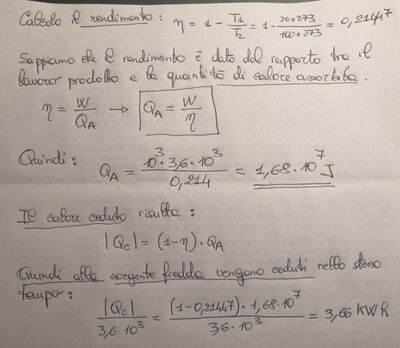 Calcolo il rendimento: η = 1 - T1/T2 = 1 - 20+273/100+273 = 0,21447
Sappiamo che il rendimento è dato dal rapporto tra il
lavoro prodotto e la quantità di calore assorbita.
η = W/QA → QA = W/η
Quindi: QA = 10³·3,6·10³/0,214 = 1,68·10⁷ J
Il calore ceduto risulta:
|Qc| = (1-η)·QA
Quindi alla sorgente fredda vengono ceduti nello stesso
tempo: |Qc|/3,6·10³ = (1-0,21447)·1,68·10⁷/3,6·10³ = 3,66 KWh